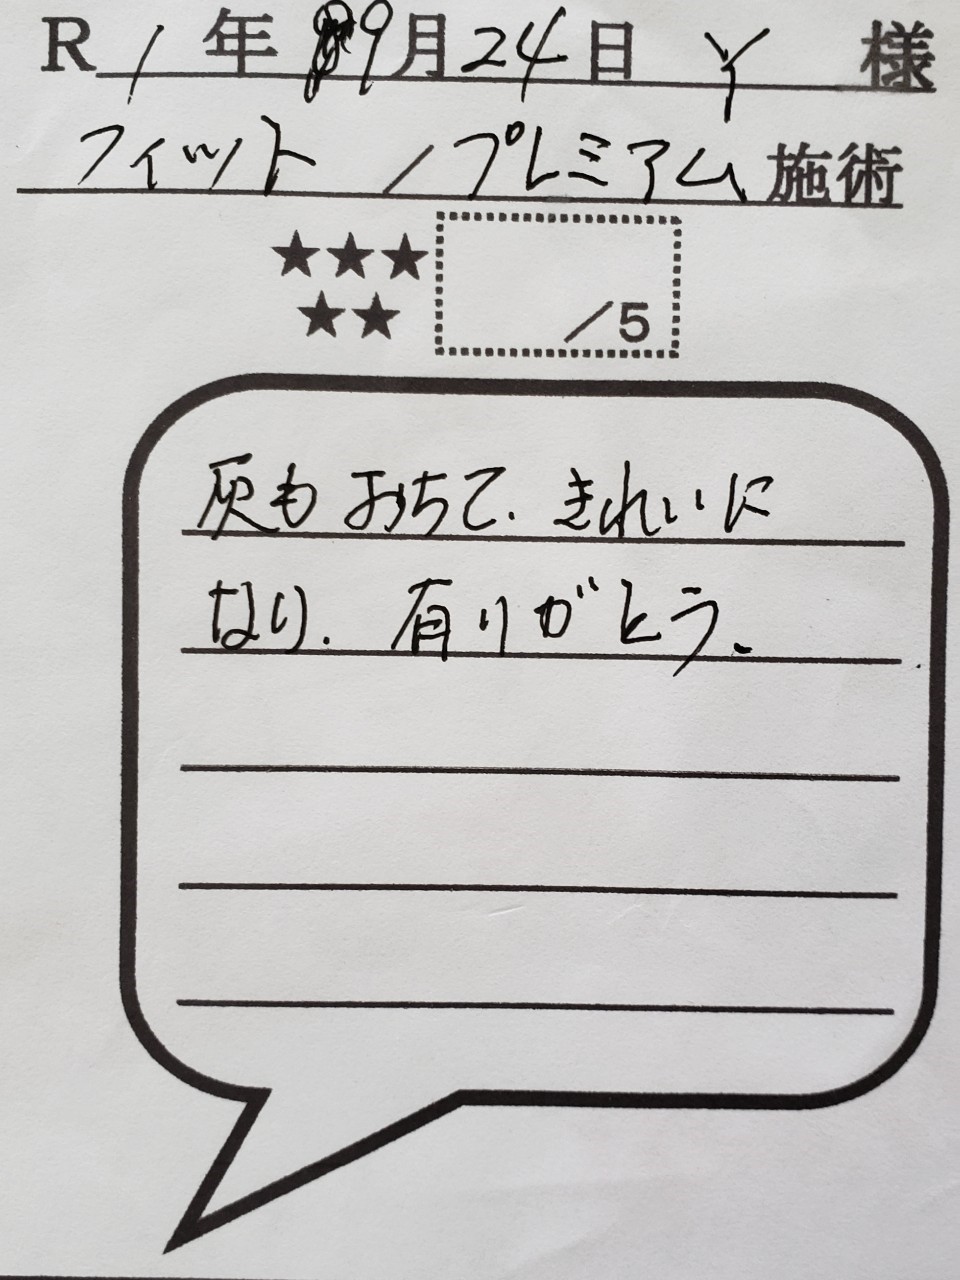 R 1 年 9月24日 Y 様
フィット / プレミアム 施術
★★★
★★
/5
灰もおちて、きれいに
なり、有りがとう、